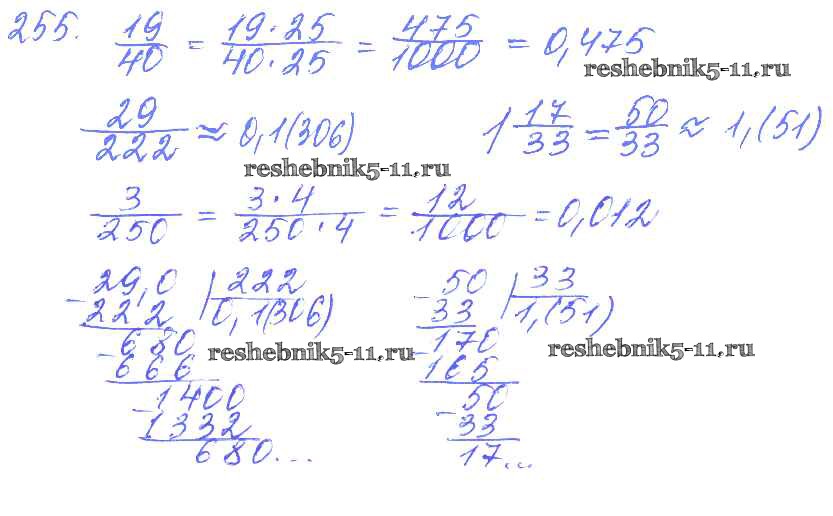 255. 19/40 = 19·25/40·25 = 475/1000 = 0,475
reshebnik5-11.ru
29/222 ≈ 0,1(306) 1 17/33 = 50/33 ≈ 1,(51)
reshebnik5-11.ru
3/250 = 3·4/250·4 = 12/1000 = 0,012
29,0 | 222 50 | 33
- 222 0,1(306) - 33 1,(51)
680 170
reshebnik5-11.ru reshebnik5-11.ru
- 666 - 165
1400 50
- 1332 - 33
680... 17...